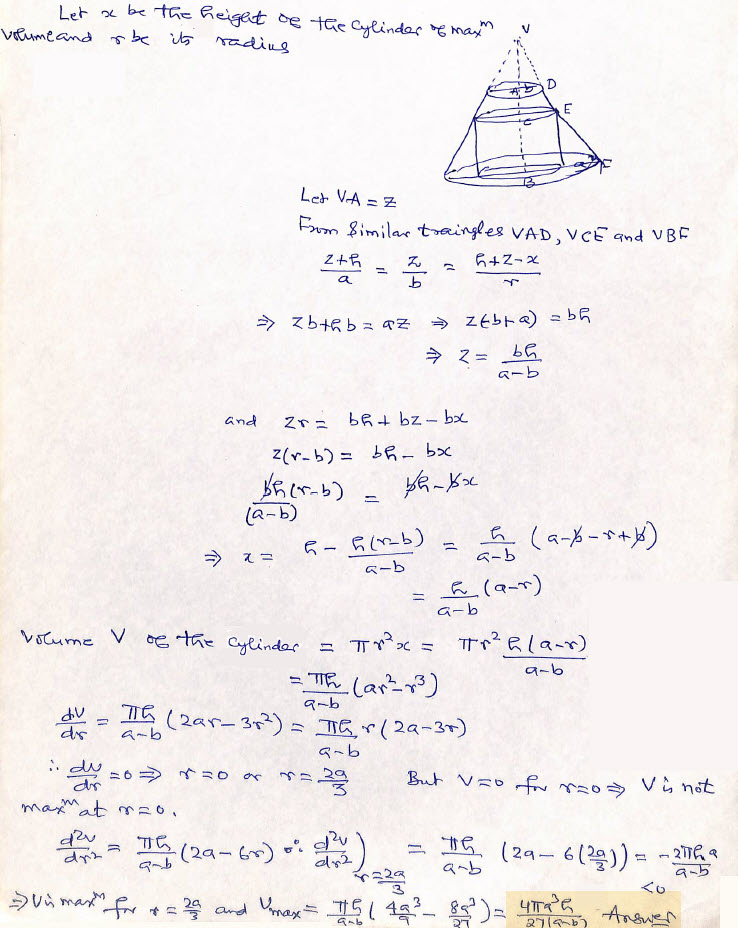 Let x be the height of the cylinder of maxᵐ
volume and r be its radius
V
A b D
E
C
a F
B
Let VA = z
From similar traingles VAD, VCE and VBF
(z+h)/a = z/b = (h+z-x)/r
⇒ zb+hb = az ⇒ z(-b+a) = bh
⇒ z = bh/(a-b)
and zr = bh + bz - bx
z(r-b) = bh - bx
bh(r-b)/(a-b) = bh - bx
⇒ x = h - h(r-b)/(a-b) = h/(a-b) (a-b-r+b)
= h/(a-b) (a-r)
Volume V of the cylinder = πr²x = πr² h(a-r)/(a-b)
= πh/(a-b) (ar²-r³)
dV/dr = πh/(a-b) (2ar-3r²) = πh/(a-b) r(2a-3r)
∴ dv/dr = 0 ⇒ r=0 or r = 2a/3 But V=0 for r=0 ⇒ V is not
maxᵐ at r=0.
d²v/dr² = πh/(a-b) (2a-6r) ∴ d²v/dr²)r=2a/3 = πh/(a-b) (2a-6(2a/3)) = -2πha/(a-b) <0
⇒ V is maxᵐ for r = 2a/3 and Vmax = πh/(a-b) (4a³/9 - 8a³/27) = 4πa³h/27(a-b) Answer